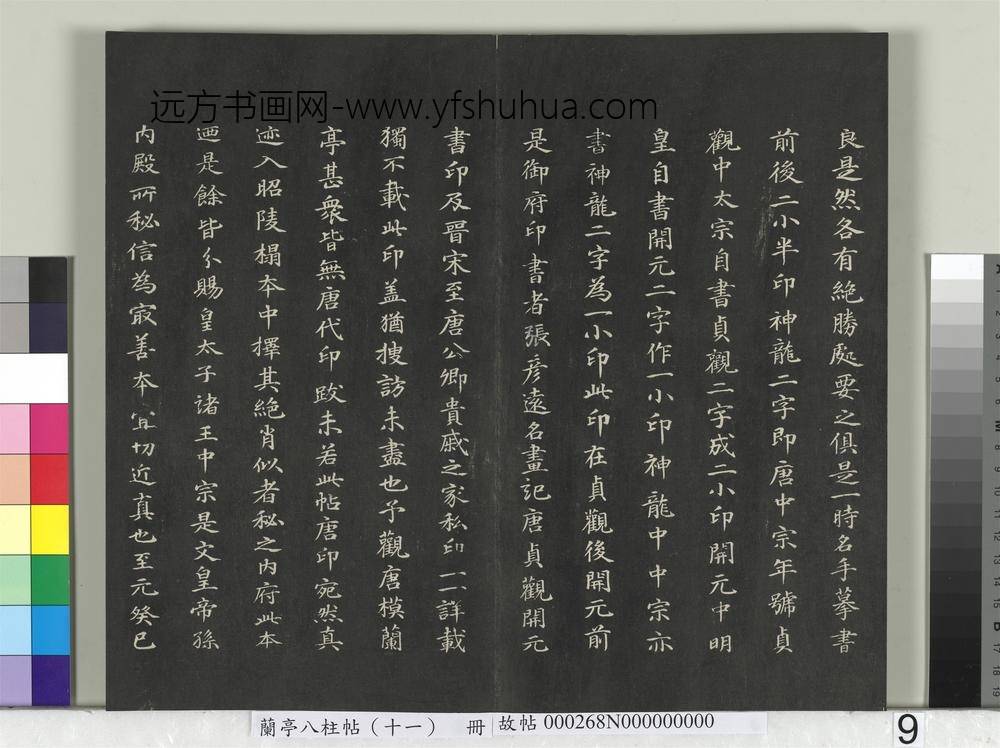 远方书画网-www.yfshuhua.com
良是然各有絶勝處要之俱是一時名手摹書
前後二小半印神龍二字即唐中宗年號貞
觀中太宗自書貞觀二字成二小印開元中明
皇自書開元二字作一小印神龍中中宗亦
書神龍二字為一小印此印在貞觀後開元前
是御府印書者張彦遠名畫記唐貞觀開元
書印及晋宋至唐公卿貴戚之家私印一一詳載
獨不載此印盖猶搜訪未盡也予觀唐模蘭
亭甚衆皆無唐代印跋未若此帖唐印宛然真
迹入昭陵榻夲中擇其絶肖似者秘之内府此本
迺是餘皆分賜皇太子諸王中宗是文皇帝孫
内殿所秘信為冣善夲宜切近真也至元癸巳
蘭亭八柱帖（十一） 冊
故帖 000268N000000000
9